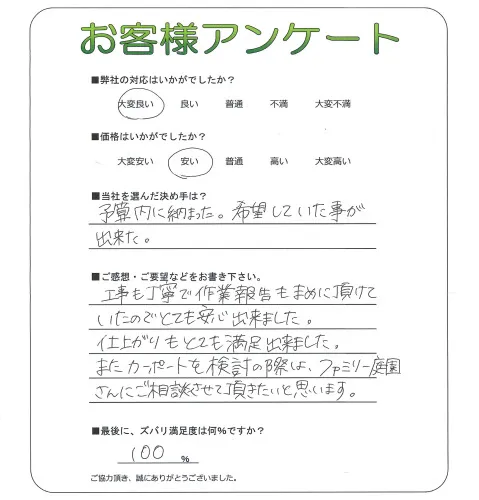 お客様アンケート
■弊社の対応はいかがでしたか？
大変良い 良い 普通 不満 大変不満
■価格はいかがでしたか？
大変安い 安い 普通 高い 大変高い
■当社を選んだ決め手は？
予算内に納まった。希望していた事が
出来た。
■ご感想・ご要望などをお書き下さい。
工事も丁寧で作業報告もまめに頂けて
いたのでとても安心出来ました。
仕上がりもとても満足出来ました。
またカーポートを検討の際は、ファミリー庭園
さんにご相談させて頂きたいと思います。
■最後に、ズバリ満足度は何%ですか？
100 %
ご協力頂き、誠にありがとうございました。